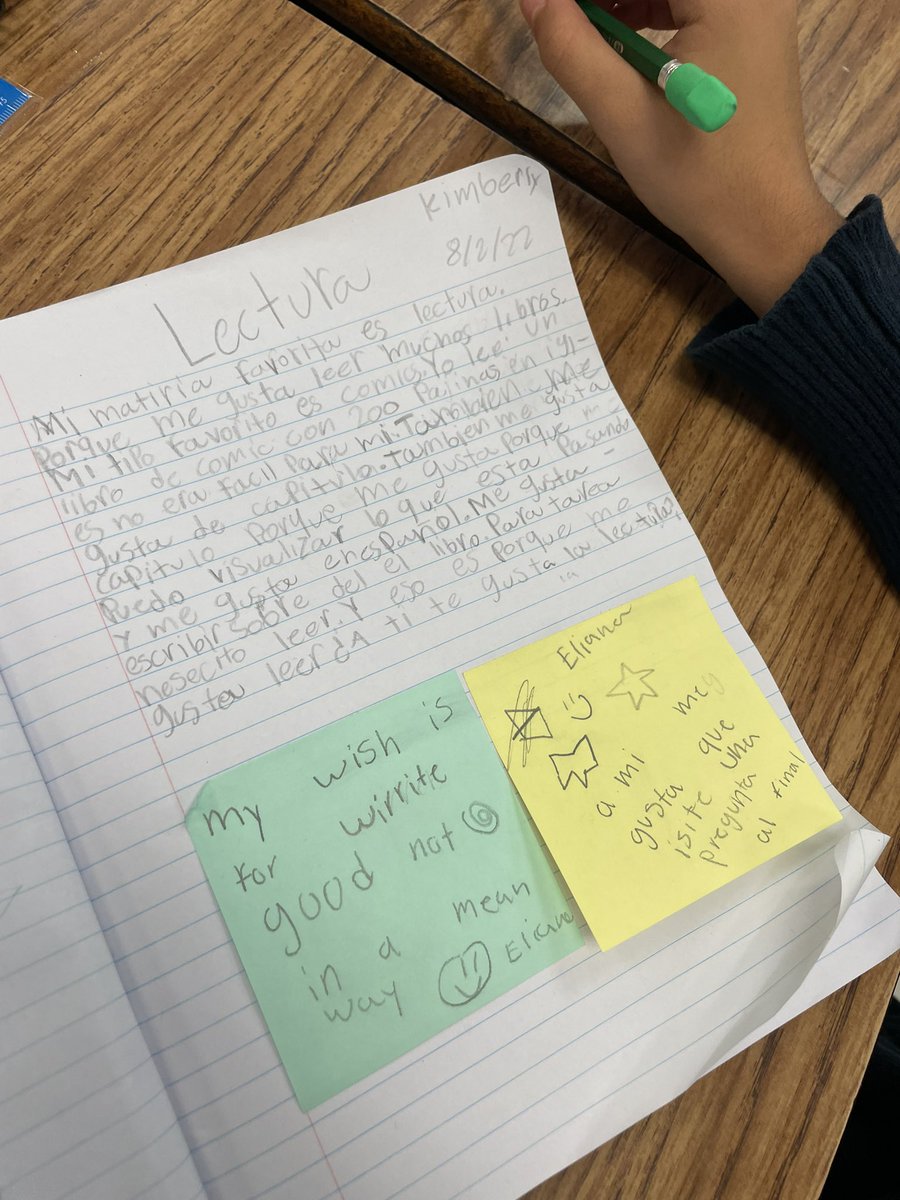 kimberly
8/2/22
Lectura
Mi matiria favorita es lectura.
Porque me gusta leer muchos libros.
Mi tipo favorito es comics. Yo leei un
libro de comic con 200 Pajinas en igl-
es no era facil Para mi. Tambien me
gusta de capitulo. Tambien me gusta
capitulo Porque me gusta Porque
Puedo visualizar lo que esta Pasando
Y me gusta en español. Me gusta
escribir sobre del el libro. Para tarea
nesecito leer. Y eso es Porque me
gusta leer ¿A ti te gusta la lectura?
my wish is
for wirrite
good not
in a mean
way Eliana
Eliana
a mi me
gusta que
isite una
pregunta
al final